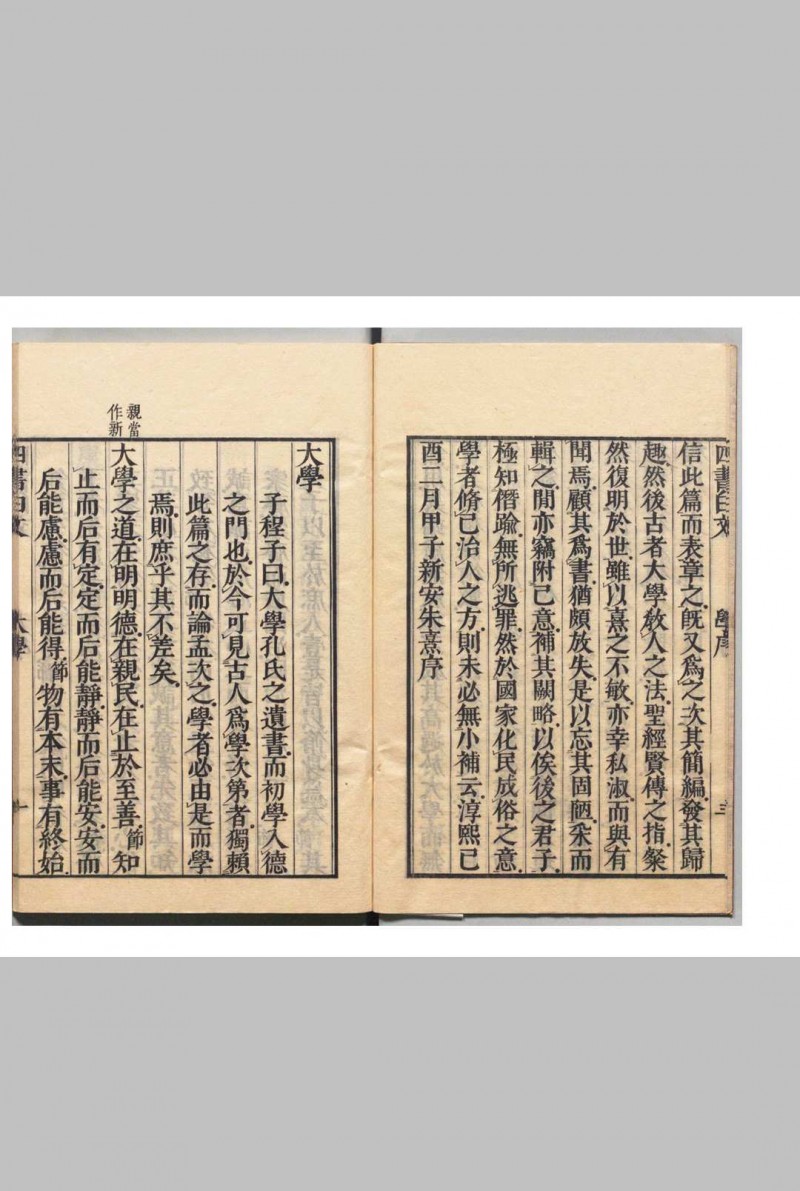 信此篇而表章之既又爲之次其簡編發其歸
趣然後古者大學敎人之法聖經賢傳之指粲
然復明於世雖以熹之不敏亦幸私淑而與有
聞焉顧其爲書猶頗放失是以忘其固陋采而
輯之閒亦竊附己意補其闕略以俟後之君子
極知僭踰無所逃罪然於國家化民成俗之意
學者脩己治人之方則未必無小補云淳熙己
酉二月甲子新安朱熹序
大學
子程子曰大學孔氏之遺書而初學入德
之門也於今可見古人爲學次第者獨賴
此篇之存而論孟次之學者必由是而學
焉則庶乎其不差矣
親當
作新
大學之道在明明德在親民在止於至善節知
止而后有定定而后能靜靜而后能安安而
后能慮慮而后能得節物有本末事有終始
四書白文 大學 一